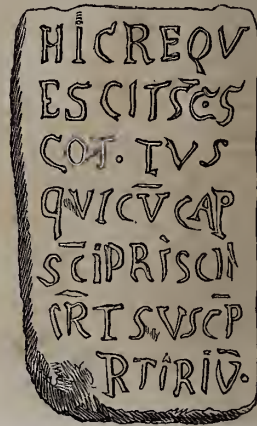 HICREQV
ESCITSC̄S
COT·TVS
QVICV̄CAP
SC̄IPRISCIN
IR̄TSVSC̄P
RTIRIV̄·